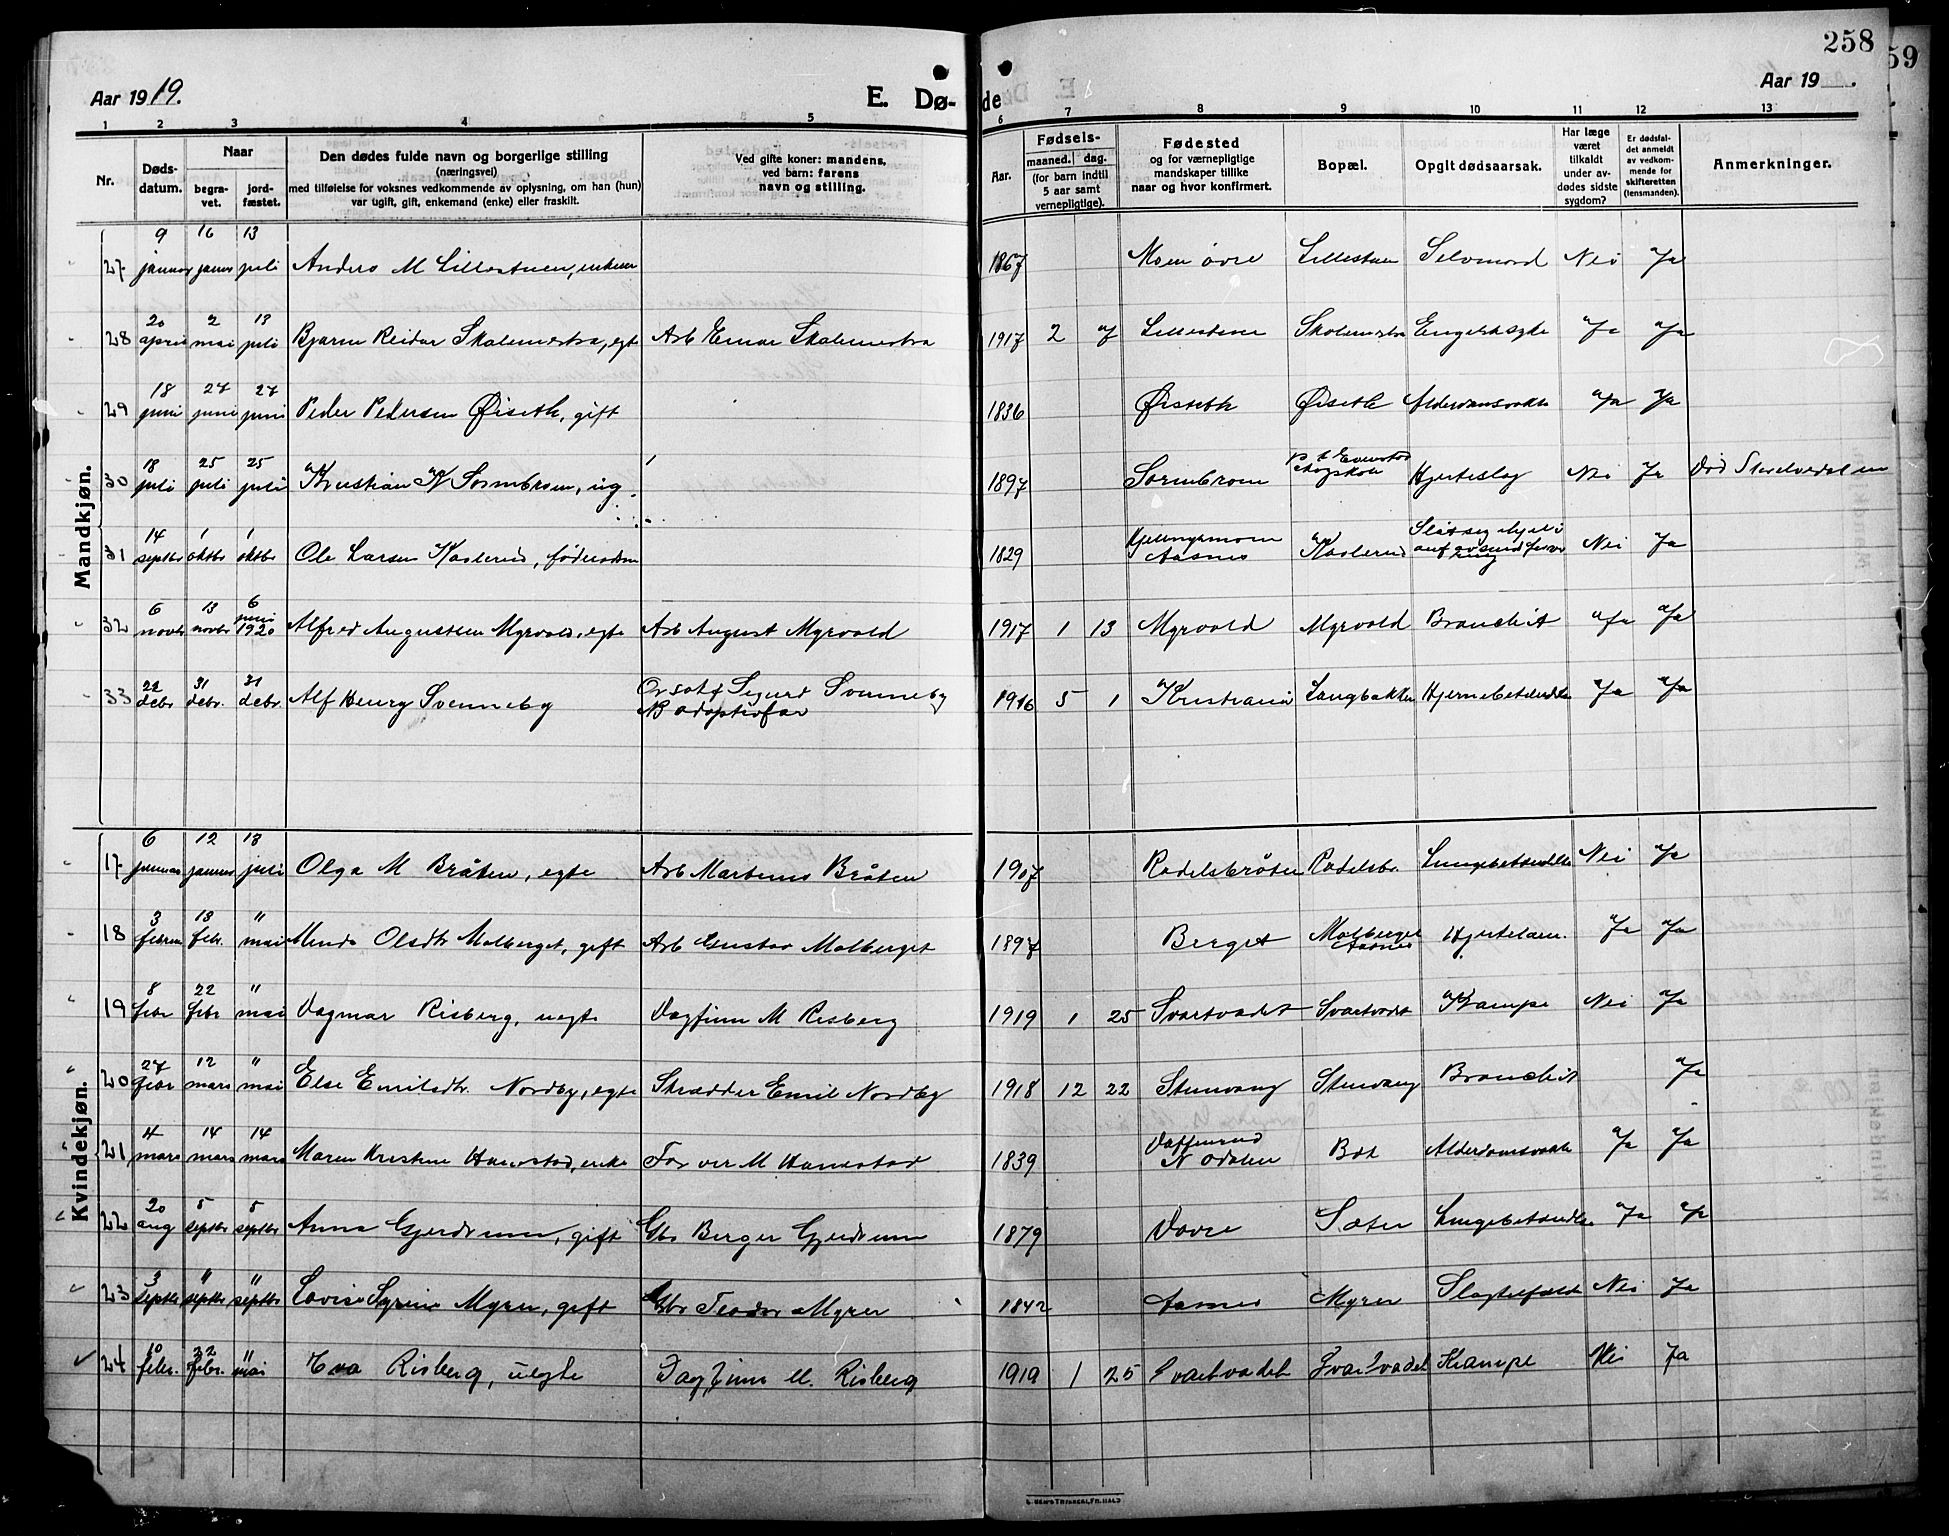 258
59
Aar 1919.
E. Dø-
de
Aar 19
1 2 3 4 5 6 7 8 9 10 11 12 13
Nr.
Døds-
datum.
Naar
begra-
vet.
jord-
fæstet.
Den dødes fulde navn og borgerlige stilling
(næringsvei)
med tilføielse for voksnes vedkommende av oplysning, om han (hun)
var ugift, gift, enkemand (enke) eller fraskilt.
Ved gifte koner: mandens,
ved barn: farens
navn og stilling.
Aar.
Fødsels-
maaned. dag.
(for barn indtil
5 aar samt
vernepligtige).
Fødested
og for værnepligtige
mandskaper tillike
naar og hvor konfirmert.
Bopæl.
Opgit dødsaarsak.
Har læge
været
tilkaldt
under av-
dødes sidste
sygdom?
Er dødsfal-
det anmeldt
av vedkom-
mende for
skifteretten
(lensmanden).
Anmerkninger.
Mandkjøn.
27 9 januar 16 januar 13 juli Anders M Lillestuen, 1867 Moen øvre Lillestuen Selvmord Nei Ja
28 20 april 2 mai 13 juli Bjarne Reidar egte Arb Einar 1917 2 Lillestuen Engelsk syke Ja Ja
29 18 juni 27 juni 27 juni Peder Pedersen Øiseth, gift 1836 Øiseth Øiseth Alderdomssvakh Ja Ja
30 18 juli 25 juli 25 juli Kristian K Sormbroen, ug. 1897 Sormbroen Hjerteslag Nei Ja
31 14 septbr 1 oktbr 1 oktbr Ole Larsen Kaslerud, 1829 Aasnes Kaslerud Nei Ja
32 6 novbr 13 novbr 6 juni 1920 Alfred Augustsen Myrvold, egte Arb August Myrvold 1917 1 13 Myrvold Myrvold Bronchit Ja Ja
33 22 debr 31 debr. 31 debr. Alf Henry Svenneby Sigurd Svenneby
NB adoptivfar 1916 5 1 Kristiania Langbakken Hjernebetændelse Ja Ja
Kvindekjøn.
17 6 januar 12 januar 13 juli Olga M Bråten, egte Arb Martinus Bråten 1907 Radelsbråten Radelsbr. Lungebetændelse Nei Ja
18 3 februar 13 febr. " mai Olsdtr Malberget, gift Arb Gustav Malberget 1897 Berget Malberget
Aasnes Ja Ja
19 8 febr 22 febr " mai Dagmar Risberg, uegte Dagfinn M Risberg 1919 1 25 Svartvadet Svartvadet Krampe Nei Ja
20 27 febr 12 mars " mai Else Emilsdtr. Nordby, egte Skrædder Emil Nordby 1918 12 22 Stenvang Stenvang Bronchit Ja
21 4 mars 14 mars 14 mars Maren Kristine enke 1839 N Odalen Alderdomssvakh Ja Ja
22 20 aug 5 septbr 5 septbr Anna Gjerdrum, gift Gbr Berger Gjerdrum 1879 Dovre Sæter Lungebetændelse Ja Ja
23 3 septbr " septbr " septbr Lovise Syrine Myrer, gift Gbr Teodor Myrer 1842 Aasnes Myrer Slagtilfælde Nei Ja
24 10 febr. 22 febr. " mai Eva Risberg, uegte Dagfinn M. Risberg 1919 1 25 Svartvadet Svartvadet Krampe Nei Ja